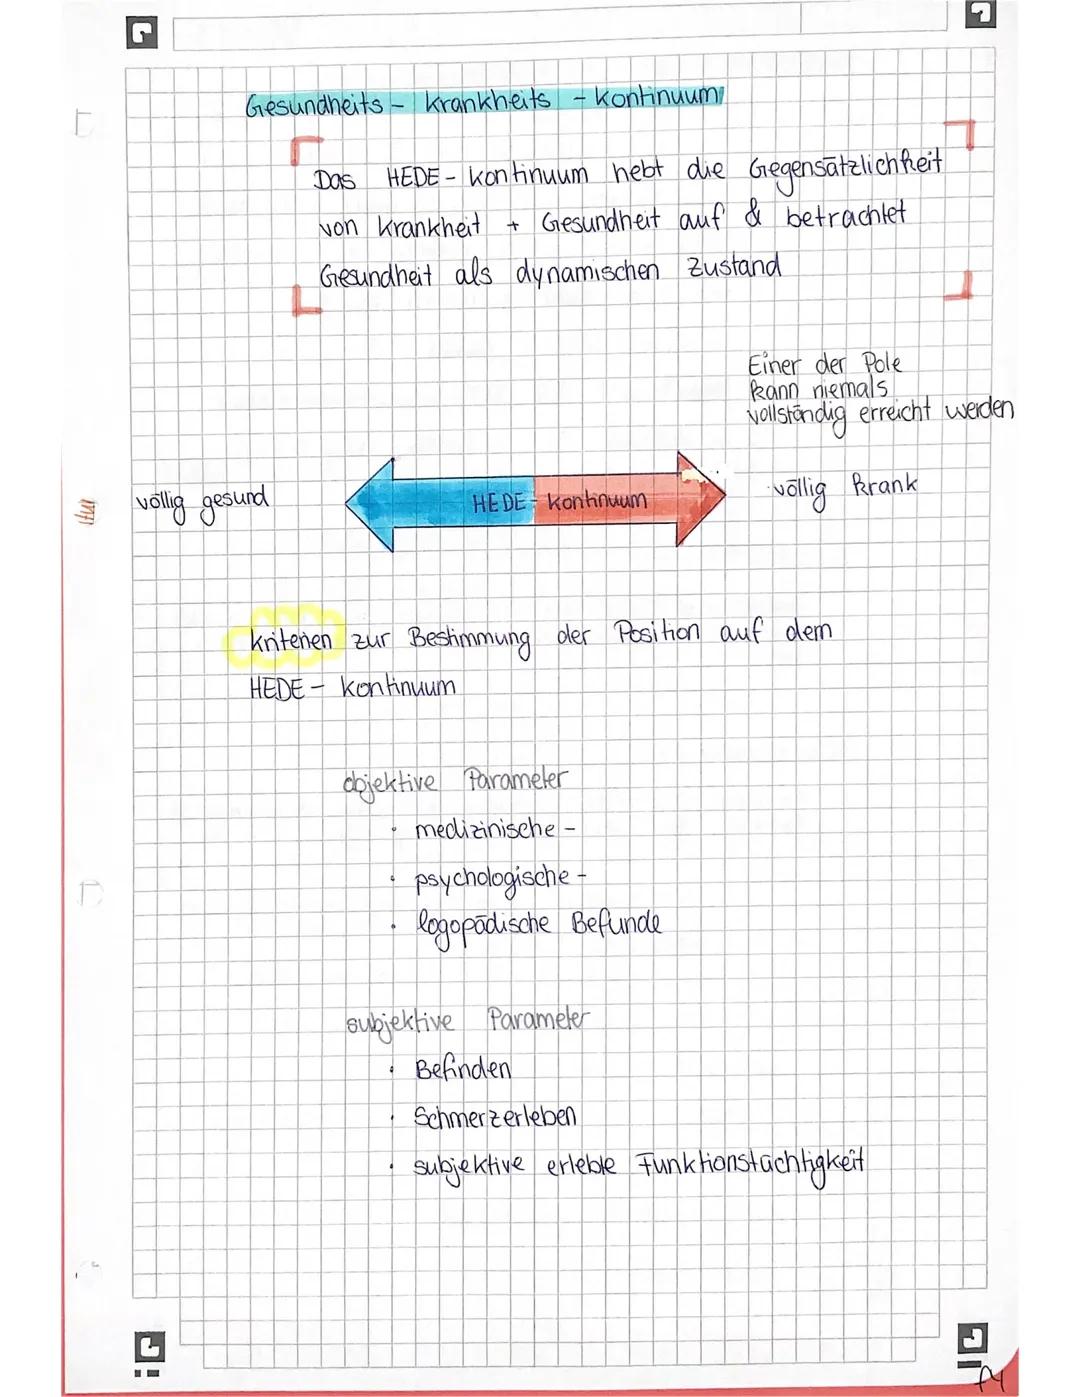 Gesundheits - Krankheits - Kontinuum
Das HEDE - Kontinuum hebt die Gegensätzlichkeit
von Krankheit + Gesundheit auf & betrachtet
Gesundheit als dynamischen Zustand
Einer der Pole
kann niemals
vollständig erreicht werden
völlig gesund
HEDE - Kontinuum
völlig krank
Kriterien zur Bestimmung der Position auf dem
HEDE - Kontinuum
objektive Parameter
• medizinische -
• psychologische -
• logopädische Befunde
subjektive Parameter
• Befinden
• Schmerzerleben
• subjektive erlebte Funktionstüchtigkeit